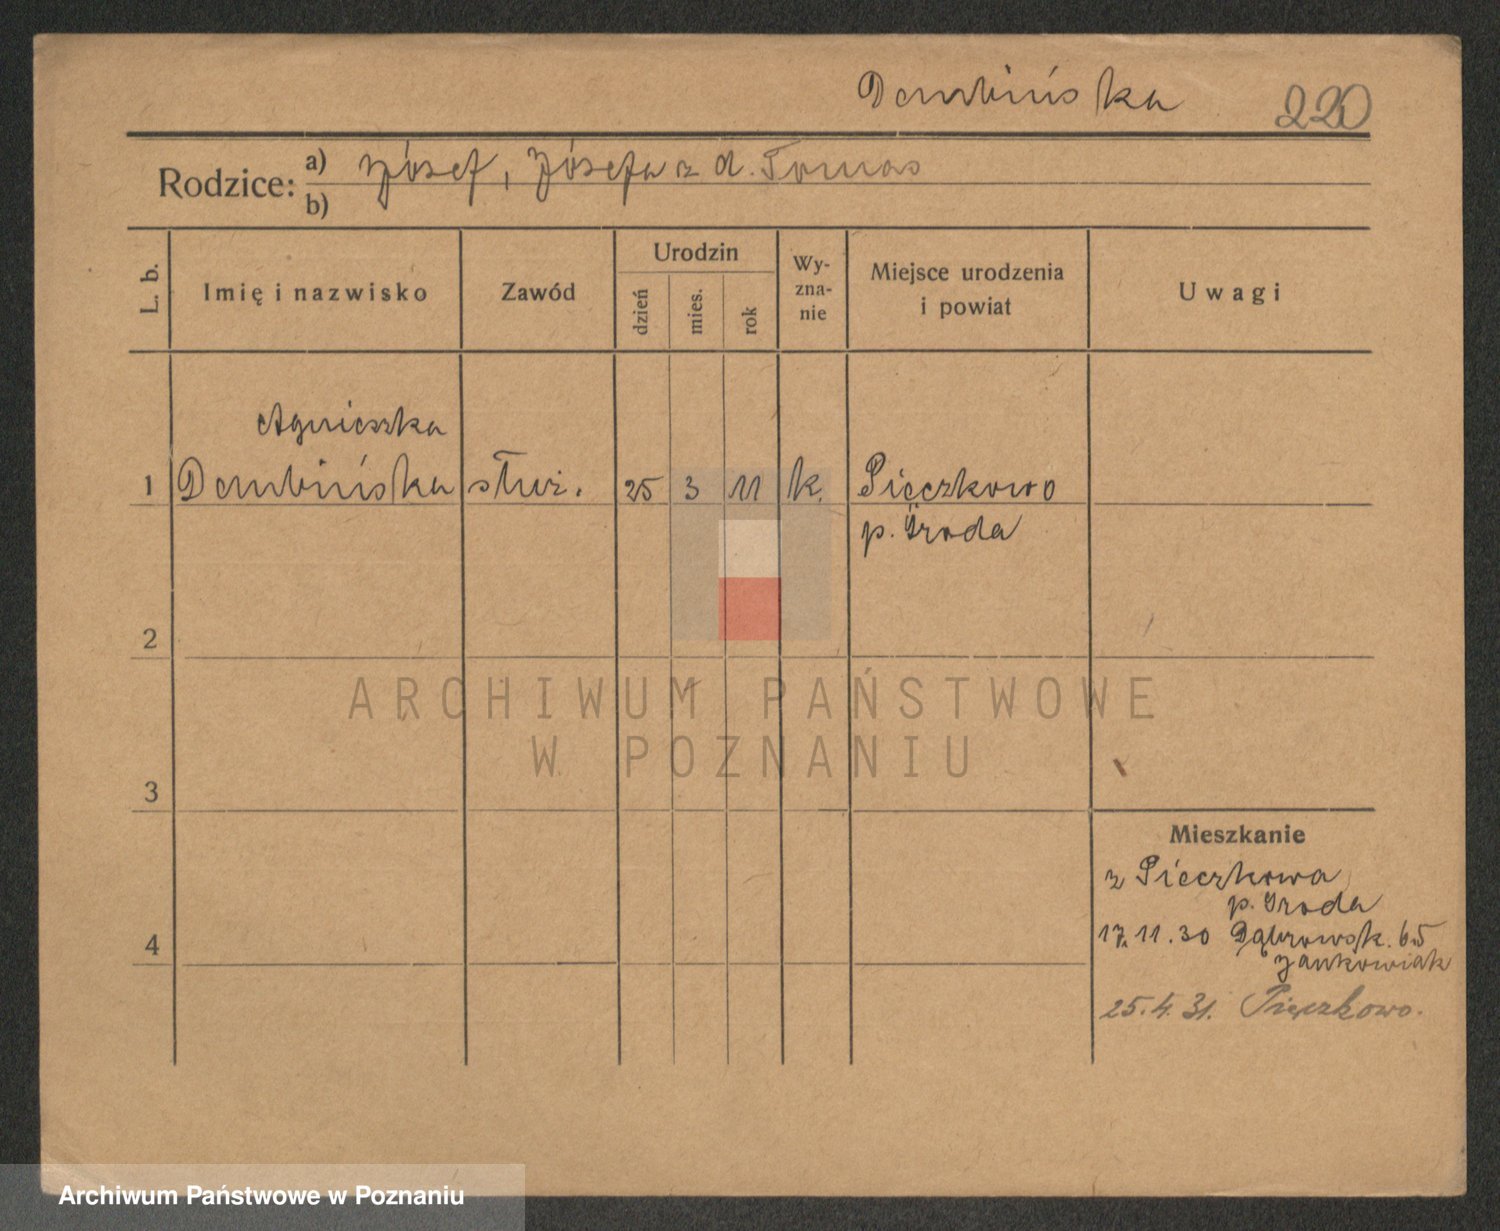 Dembińska 220
Rodzice: a) Józef, Józefa z d. Tomas
b)
L. b.
Imię i nazwisko
Zawód
Urodzin
dzień
mies.
rok
Wy-
zna-
nie
Miejsce urodzenia
i powiat
Uwagi
Agnieszka
1 Dembińska służ. 25 3 11 k. Pięczkowo
p. Środa
2
ARCHIWUM PAŃSTWOWE
W POZNANIU
3
Mieszkanie
z Pięczkowa
p. Środa
4
17.11.30 Dąbrowsk. 65
Jankowiak
25.4.31. Pięczkowo.
Archiwum Państwowe w Poznaniu